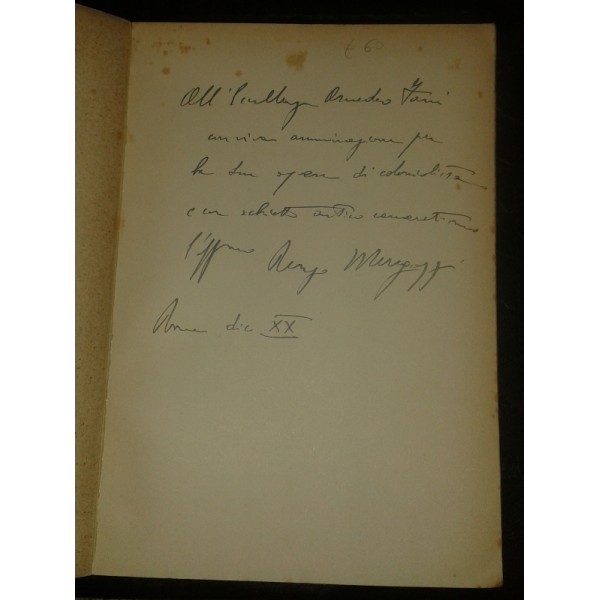 € 60
All'Eccellenza Amedeo Fani
con viva ammirazione per
la Sua opera di colonialista
e con schietto antico cameratismo
l'aff.mo Renzo Meregazzi
Roma dic XX